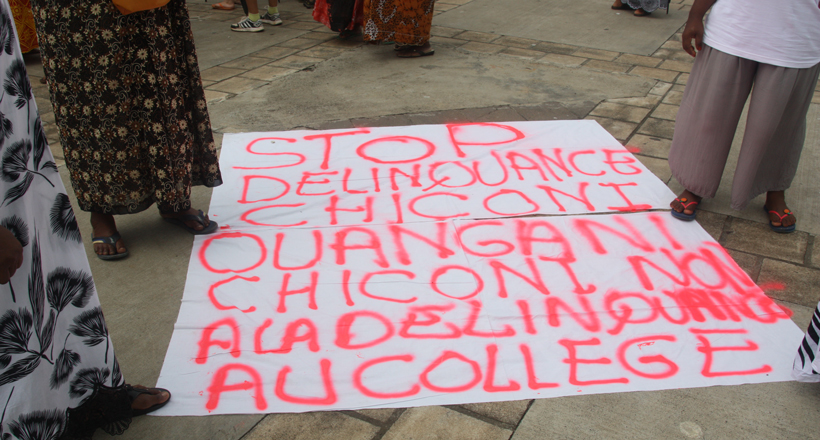 STOP
DELINQUANCE
CHICONI
OUANGANI
CHICONI NON
A LA DELINQUANCE
AU COLLEGE